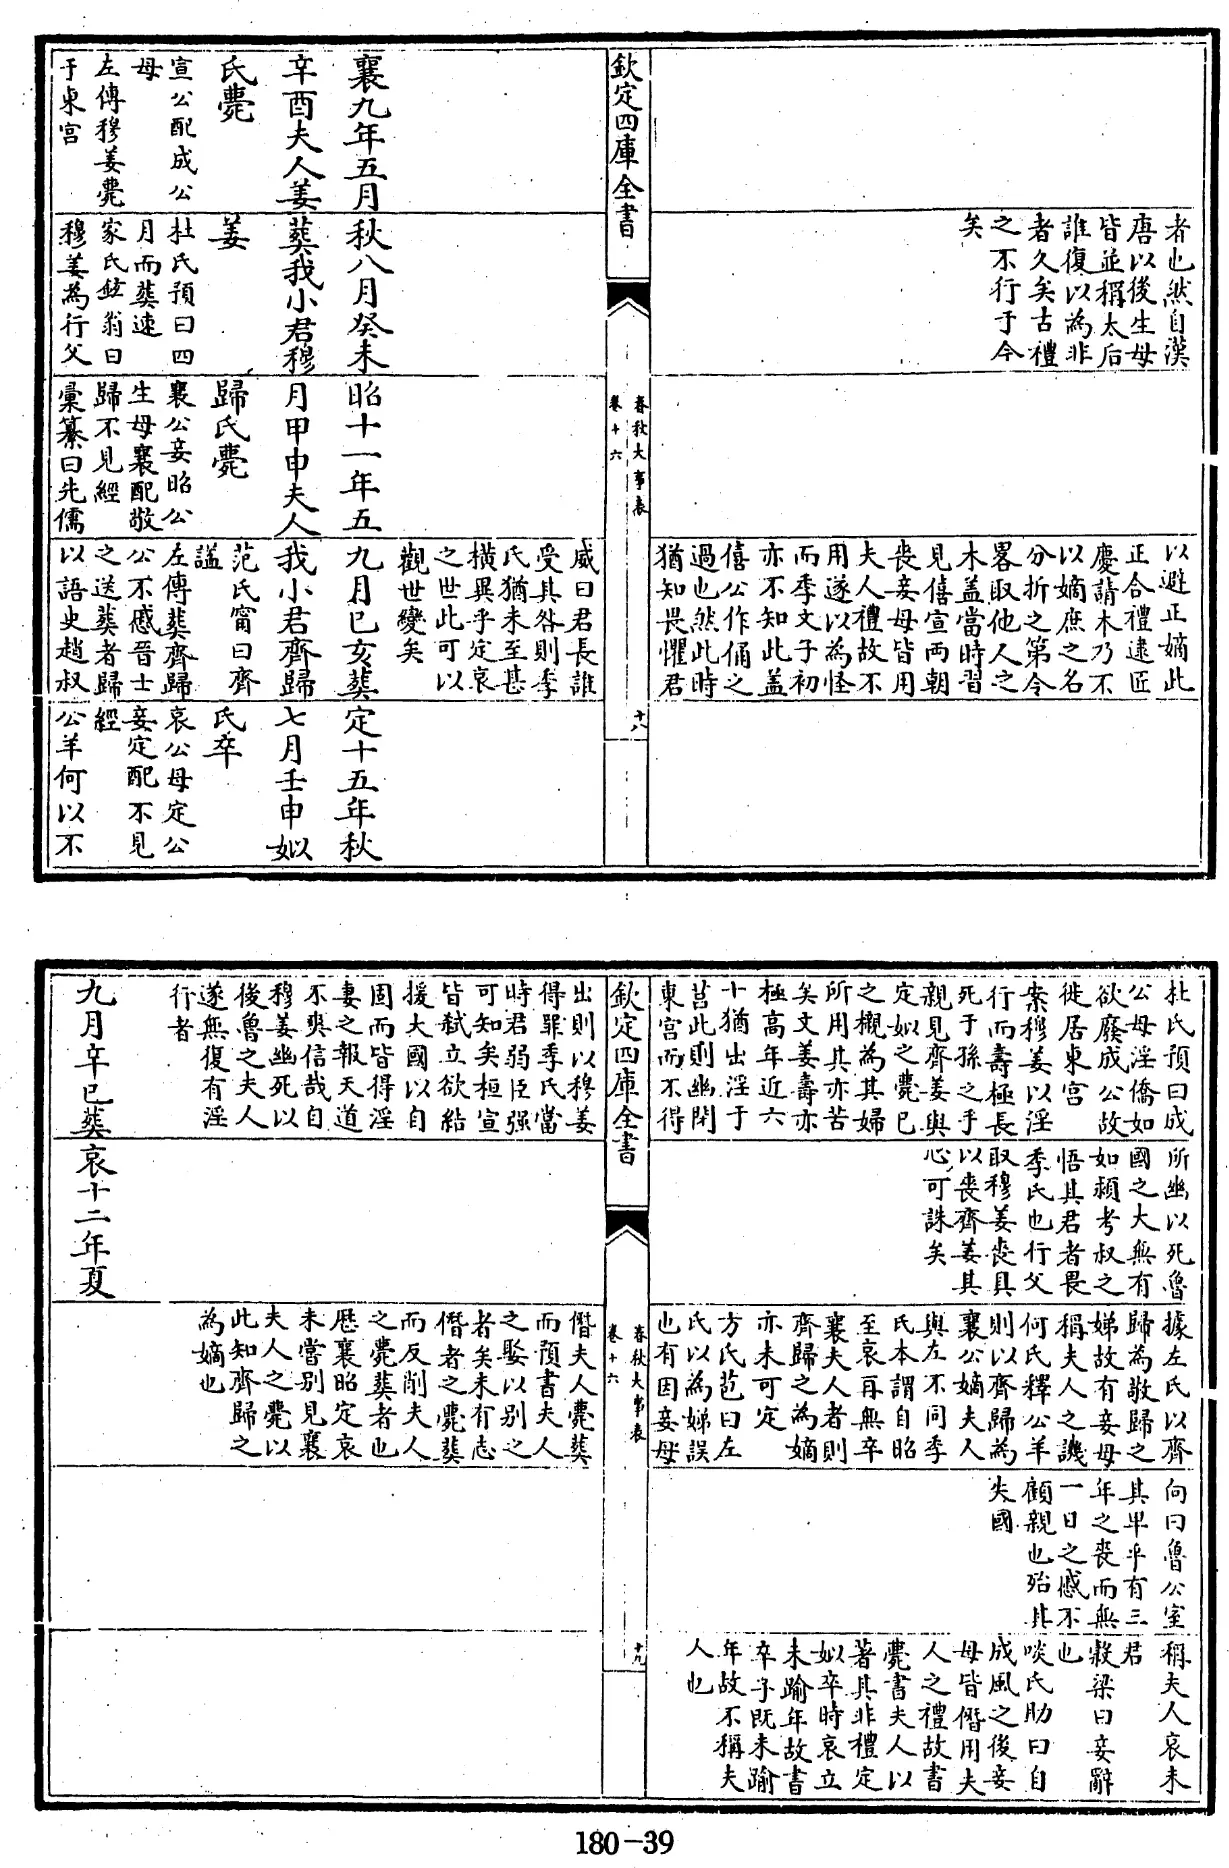 者也然自漢
唐以後生母
皆並稱太后
誰復以為非
者久矣古禮
之不行于今
矣
以避正嫡此
正合禮逮匠
慶請木乃不
以嫡庶之名
分折之第令
畧取他人之
木蓋當時習
見僖宣两朝
喪妾母皆用
夫人禮故不
用遂以為怪
而季文子初
亦不知此蓋
僖公作俑之
過也然此時
猶知畏懼君
欽定四庫全書
春秋大事表
卷十六
十八
襄九年五月
辛酉夫人姜
氏薨
宣公配成公
母
左傳穆姜薨
于東宮
秋八月癸未
葬我小君穆
姜
杜氏預曰四
月而葬速
家氏鉉翁曰
穆姜為行父
昭十一年五
月甲申夫人
歸氏薨
襄公妾昭公
生母襄配敬
歸不見經
彙纂曰先儒
威曰君長誰
受其咎則季
氏猶未至甚
橫異乎定哀
之世此可以
觀世變矣
九月己亥葬
我小君齊歸
范氏甯曰齊
諡
左傳葬齊歸
公不慼晉士
之送葬者歸
以語史趙叔
定十五年秋
七月壬申姒
氏卒
哀公母定公
妾定配不見
經
公羊何以不
杜氏預曰成
公母淫僑如
欲廢成公故
徙居東宮
案穆姜以淫
行而壽極長
死于孫之手
親見齊姜與
定姒之薨已
之櫬為其婦
所用其亦苦
矣文姜壽亦
極高年近六
十猶出淫于
莒此則幽閉
東宮而不得
所幽以死魯
國之大無有
如潁考叔之
悟其君者畏
季氏也行父
取穆姜喪具
以喪齊姜其
心可誅矣
據左氏以齊
歸為敬歸之
娣故有妾母
稱夫人之譏
何氏釋公羊
則以齊歸為
襄公嫡夫人
與左不同季
氏本謂自昭
至哀再無卒
襄夫人者則
齊歸之為嫡
亦未可定
方氏苞曰左
氏以為娣誤
也有因妾母
向曰魯公室
其卑乎有三
年之喪而無
一日之慼不
顧親也殆其
失國
稱夫人哀未
君
榖梁曰妾辭
也
啖氏助曰自
成風之後妾
母皆僭用夫
人之禮故書
薨書夫人以
著其非禮定
姒卒時哀立
未踰年故書
卒子既未踰
年故不稱夫
人也
欽定四庫全書
春秋大事表
卷十六
十九
出則以穆姜
得罪季氏當
時君弱臣强
可知矣桓宣
皆弑立欲結
援大國以自
固而皆得淫
妻之報天道
不爽信哉自
穆姜幽死以
後魯之夫人
遂無復有淫
行者
九月辛巳葬
哀十二年夏
僭夫人薨葬
而預書夫人
之娶以別之
者矣未有志
僭者之薨葬
而反削夫人
之薨葬者也
歷襄昭定哀
未嘗別見襄
夫人之薨以
此知齊歸之
為嫡也
180-39